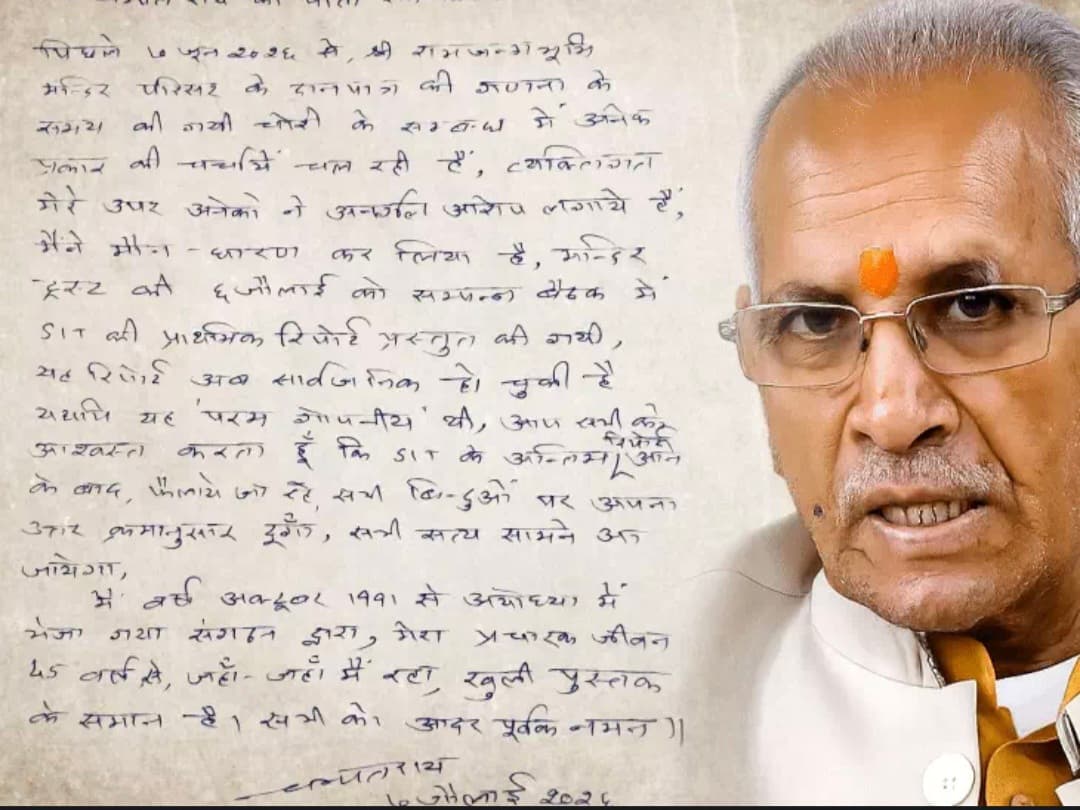 चम्पतराय का
पिछले ७ जून २०२६ से, श्री रामजन्मभूमि
मन्दिर परिसर के दानपात्र की गणना के
समय की गयी चोरी के सम्बन्ध में अनेक
प्रकार की चर्चायें चल रही हैं, व्यक्तिगत
मेरे उपर अनेको ने अनर्गल आरोप लगाये हैं,
मैंने मौन-धारण कर लिया है, मन्दिर
ट्रस्ट की ६ जौलाई को सम्पन्न बैठक में
SIT की प्राथमिक रिपोर्ट प्रस्तुत की गयी,
यह रिपोर्ट अब सार्वजनिक हो चुकी है
यद्यपि यह 'परम गोपनीय' थी, आप सभी को
आश्वस्त करता हूँ कि SIT के अन्तिम रिपोर्ट आने
के बाद, फैलाये जा रहे, सभी बिन्दुओं पर अपना
उत्तर क्रमानुसार दूँगा, सभी सत्य सामने आ
जायेगा,
मैं वर्ष अक्टूबर 1991 से अयोध्या में
भेजा गया संगठन द्वारा, मेरा प्रचारक जीवन
45 वर्ष से, जहाँ-जहाँ मैं रहा, खुली पुस्तक
के समान है। सभी को आदर पूर्वक नमन॥
चम्पतराय
७ जौलाई २०२६